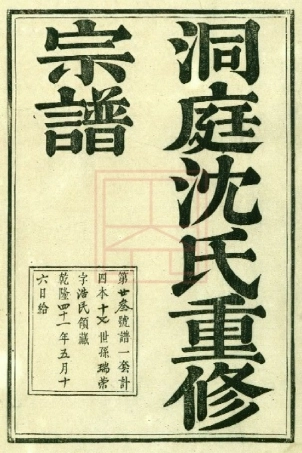 洞庭沈氏重修
宗譜
第廿叄號譜一套計
四本十七世孫瑞常
字浩民領藏
乾隆四十一年五月十
六日給